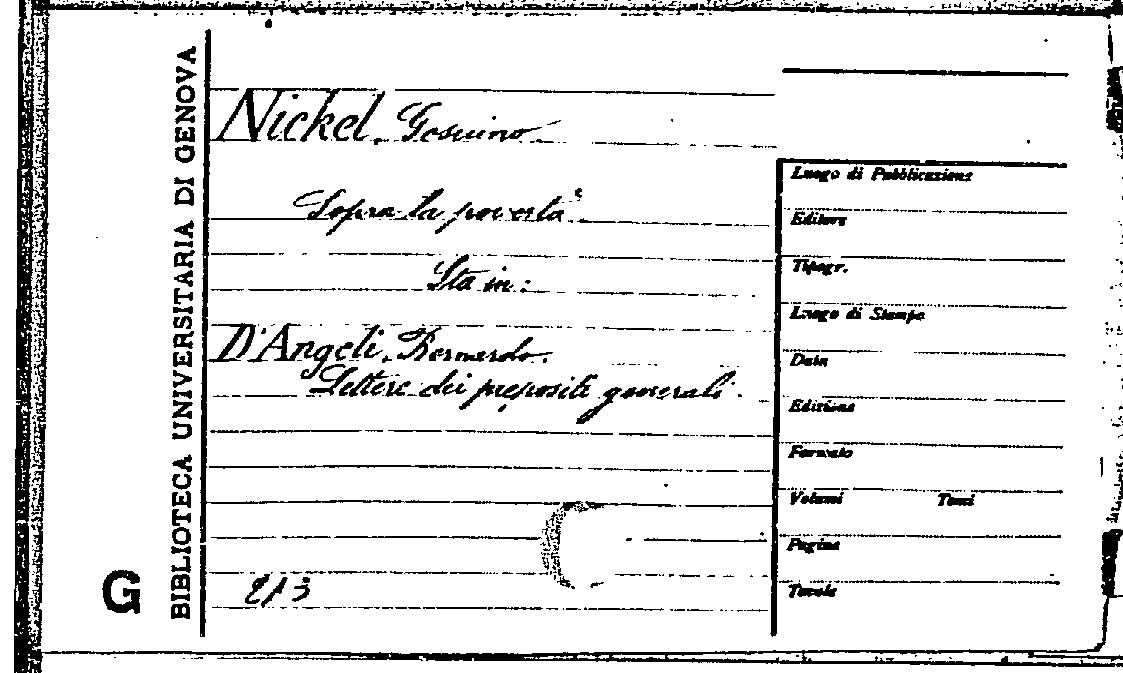 BIBLIOTECA UNIVERSITARIA DI GENOVA
G
Nickel, Gosuino
Sopra la povertà
Sta in:
D'Angeli, Bernardo.
Lettere dei prepositi generali.
213
Luogo di Pubblicazione
Editore
Tipogr.
Luogo di Stampa
Data
Edizione
Formato
Volumi Tomi
Pagine
Tavole